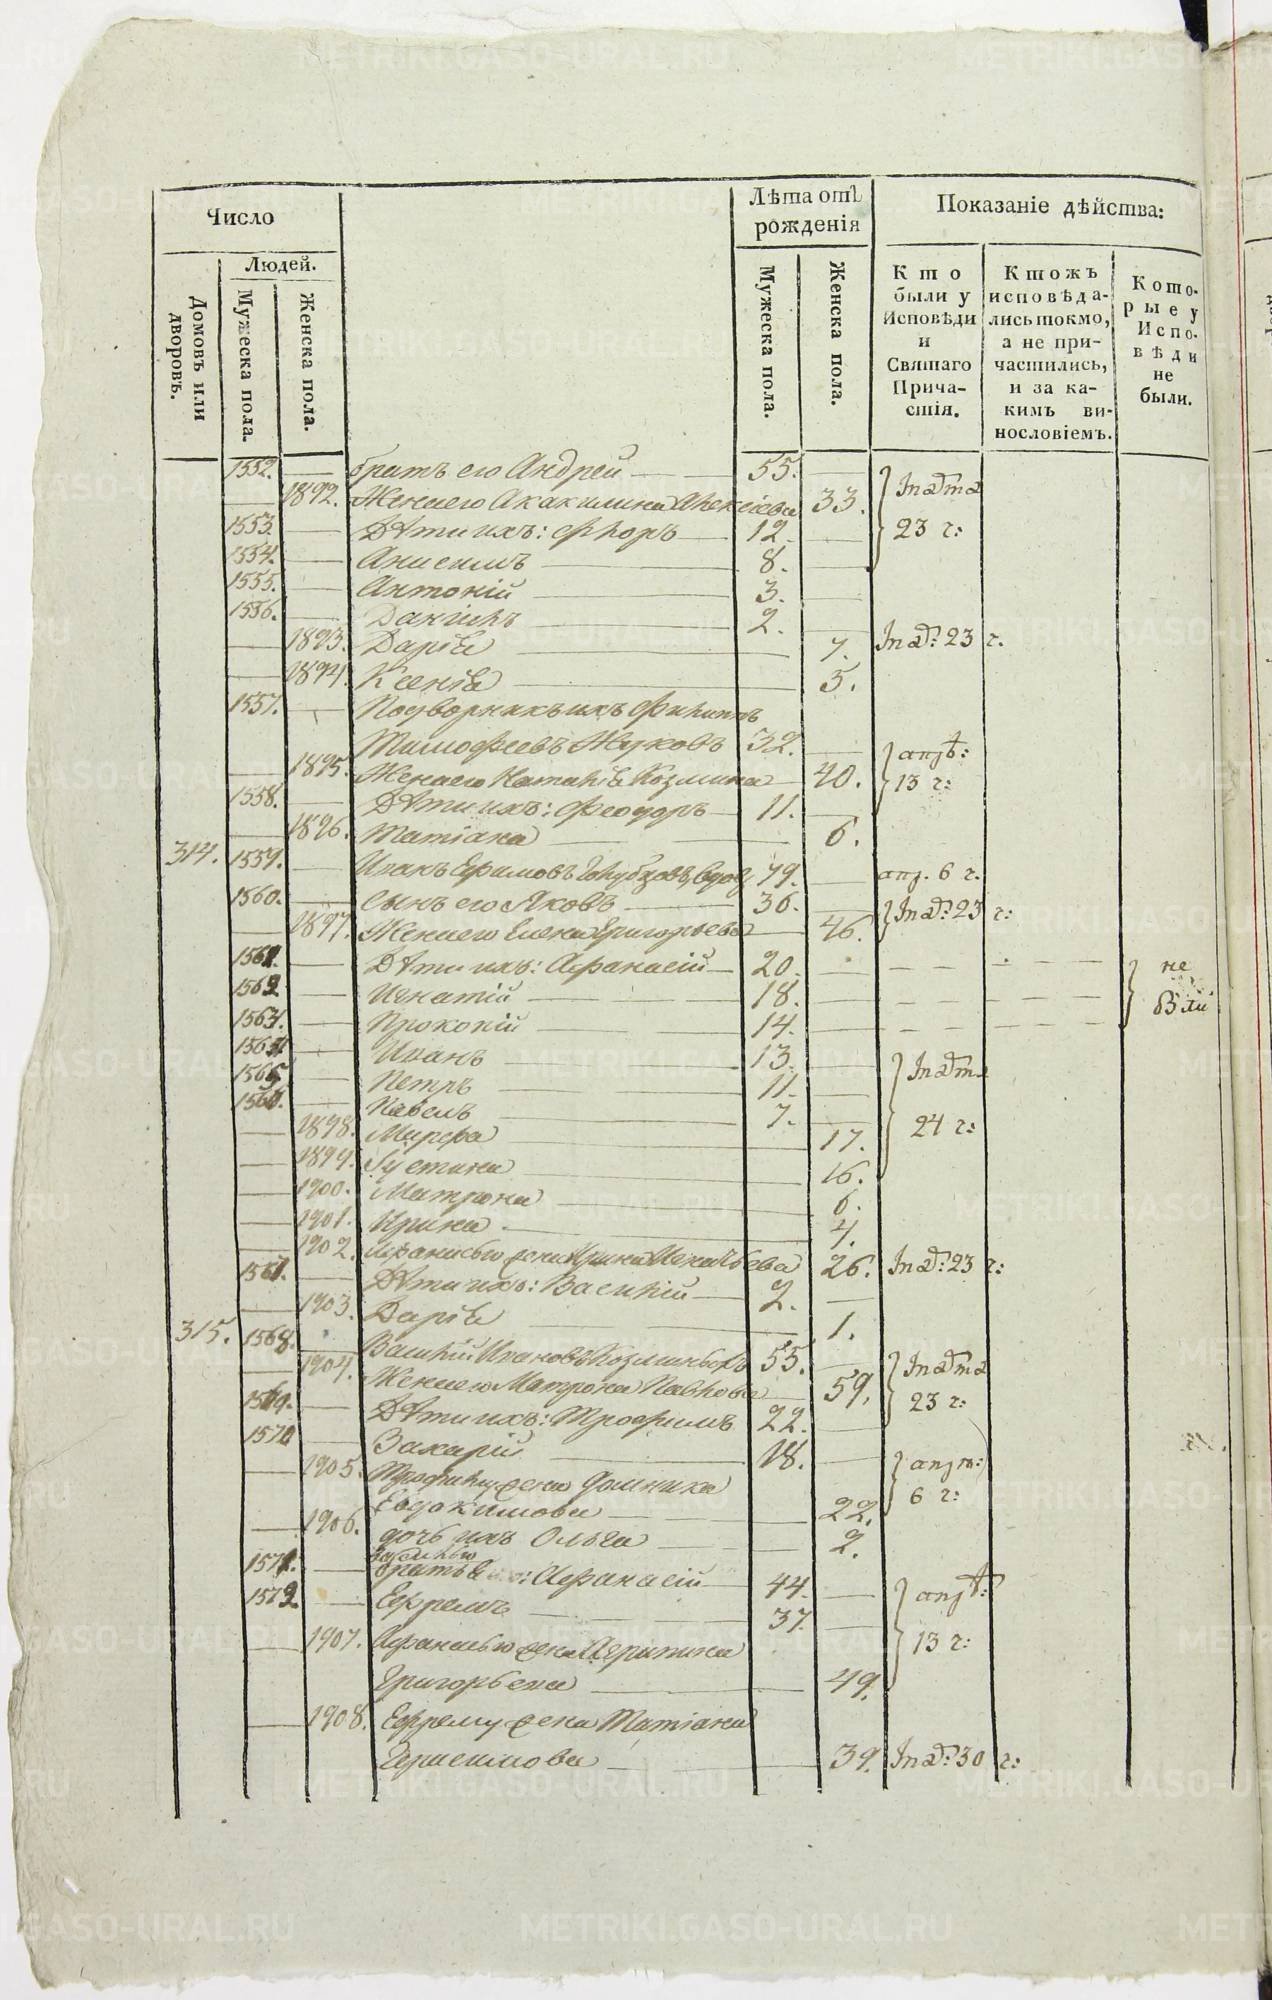 Число
Людей.
Домовъ или дворовъ.
Мужеска пола.
Женска пола.
Лѣта отъ рожденія
Мужеска пола.
Женска пола.
Показаніе дѣйства:
Кто были у Исповѣди и Святаго Причастія.
Ктожъ исповѣдались токмо, а не причастились, и за какимъ винословіемъ.
Которые у Исповѣди не были.
1552. братъ его Андрей 55.
1892. Жена его Акакилина Алексіева 33.
1553. Дѣти ихъ: Флоръ 12. 23 г:
1554. Анисимъ 8.
1555. Антоній 3.
1556. Даніилъ 2.
1893. Дарія 7. 23 г.
1894. Ксенія 5.
1557. Подворникъ ихъ Филиппъ
Тимофеевъ Жуковъ 32. апрѣ:
1895. Жена его Наталія Козмина 40. 13 г:
1558. Дѣти ихъ: Феодоръ 11.
1896. Татіана 6.
314. 1559. Исакъ Ефимовъ Голубцовъ, вдовъ 79. апр. 6 г.
1560. Сынъ его Яковъ 36. 23 г:
1897. Жена его Елена Григорьева 46.
1561. Дѣти ихъ: Афанасій 20. не
1562 Игнатій 18. были
1563. Прокопій 14.
1564 Иванъ 13.
1565 Петръ 11.
1566. Павелъ 7.
1898. Марфа 17. 24 г:
1899. Іустина 16.
1900. Матрона 6.
1901. Ирина 4.
1902. Афанасью жена Ирина 26. 23 г:
1567. Дѣти ихъ: Василій 2.
1903. Дарія 1.
315. 1568. Василій Ивановъ Козминыхъ 55.
1904. Жена его Матрона Павлова 59.
1569. Дѣти ихъ: Трофимъ 22. 23 г:
1570 Захарій 18.
1905. Трофиму жена Домника апрѣ:
Евдокимова 22. 6 г:
1906. дочь ихъ Ольга 2.
Василью
1571. братья: Афанасій 44. апрѣ:
1572. Ефремъ 37.
1907. Афанасью жена Агрипина 13 г:
Григорьева 49.
1908. Ефрему жена Татіана
Герасимова 39. 30 г:
METRIKI.GASO-URAL.RU